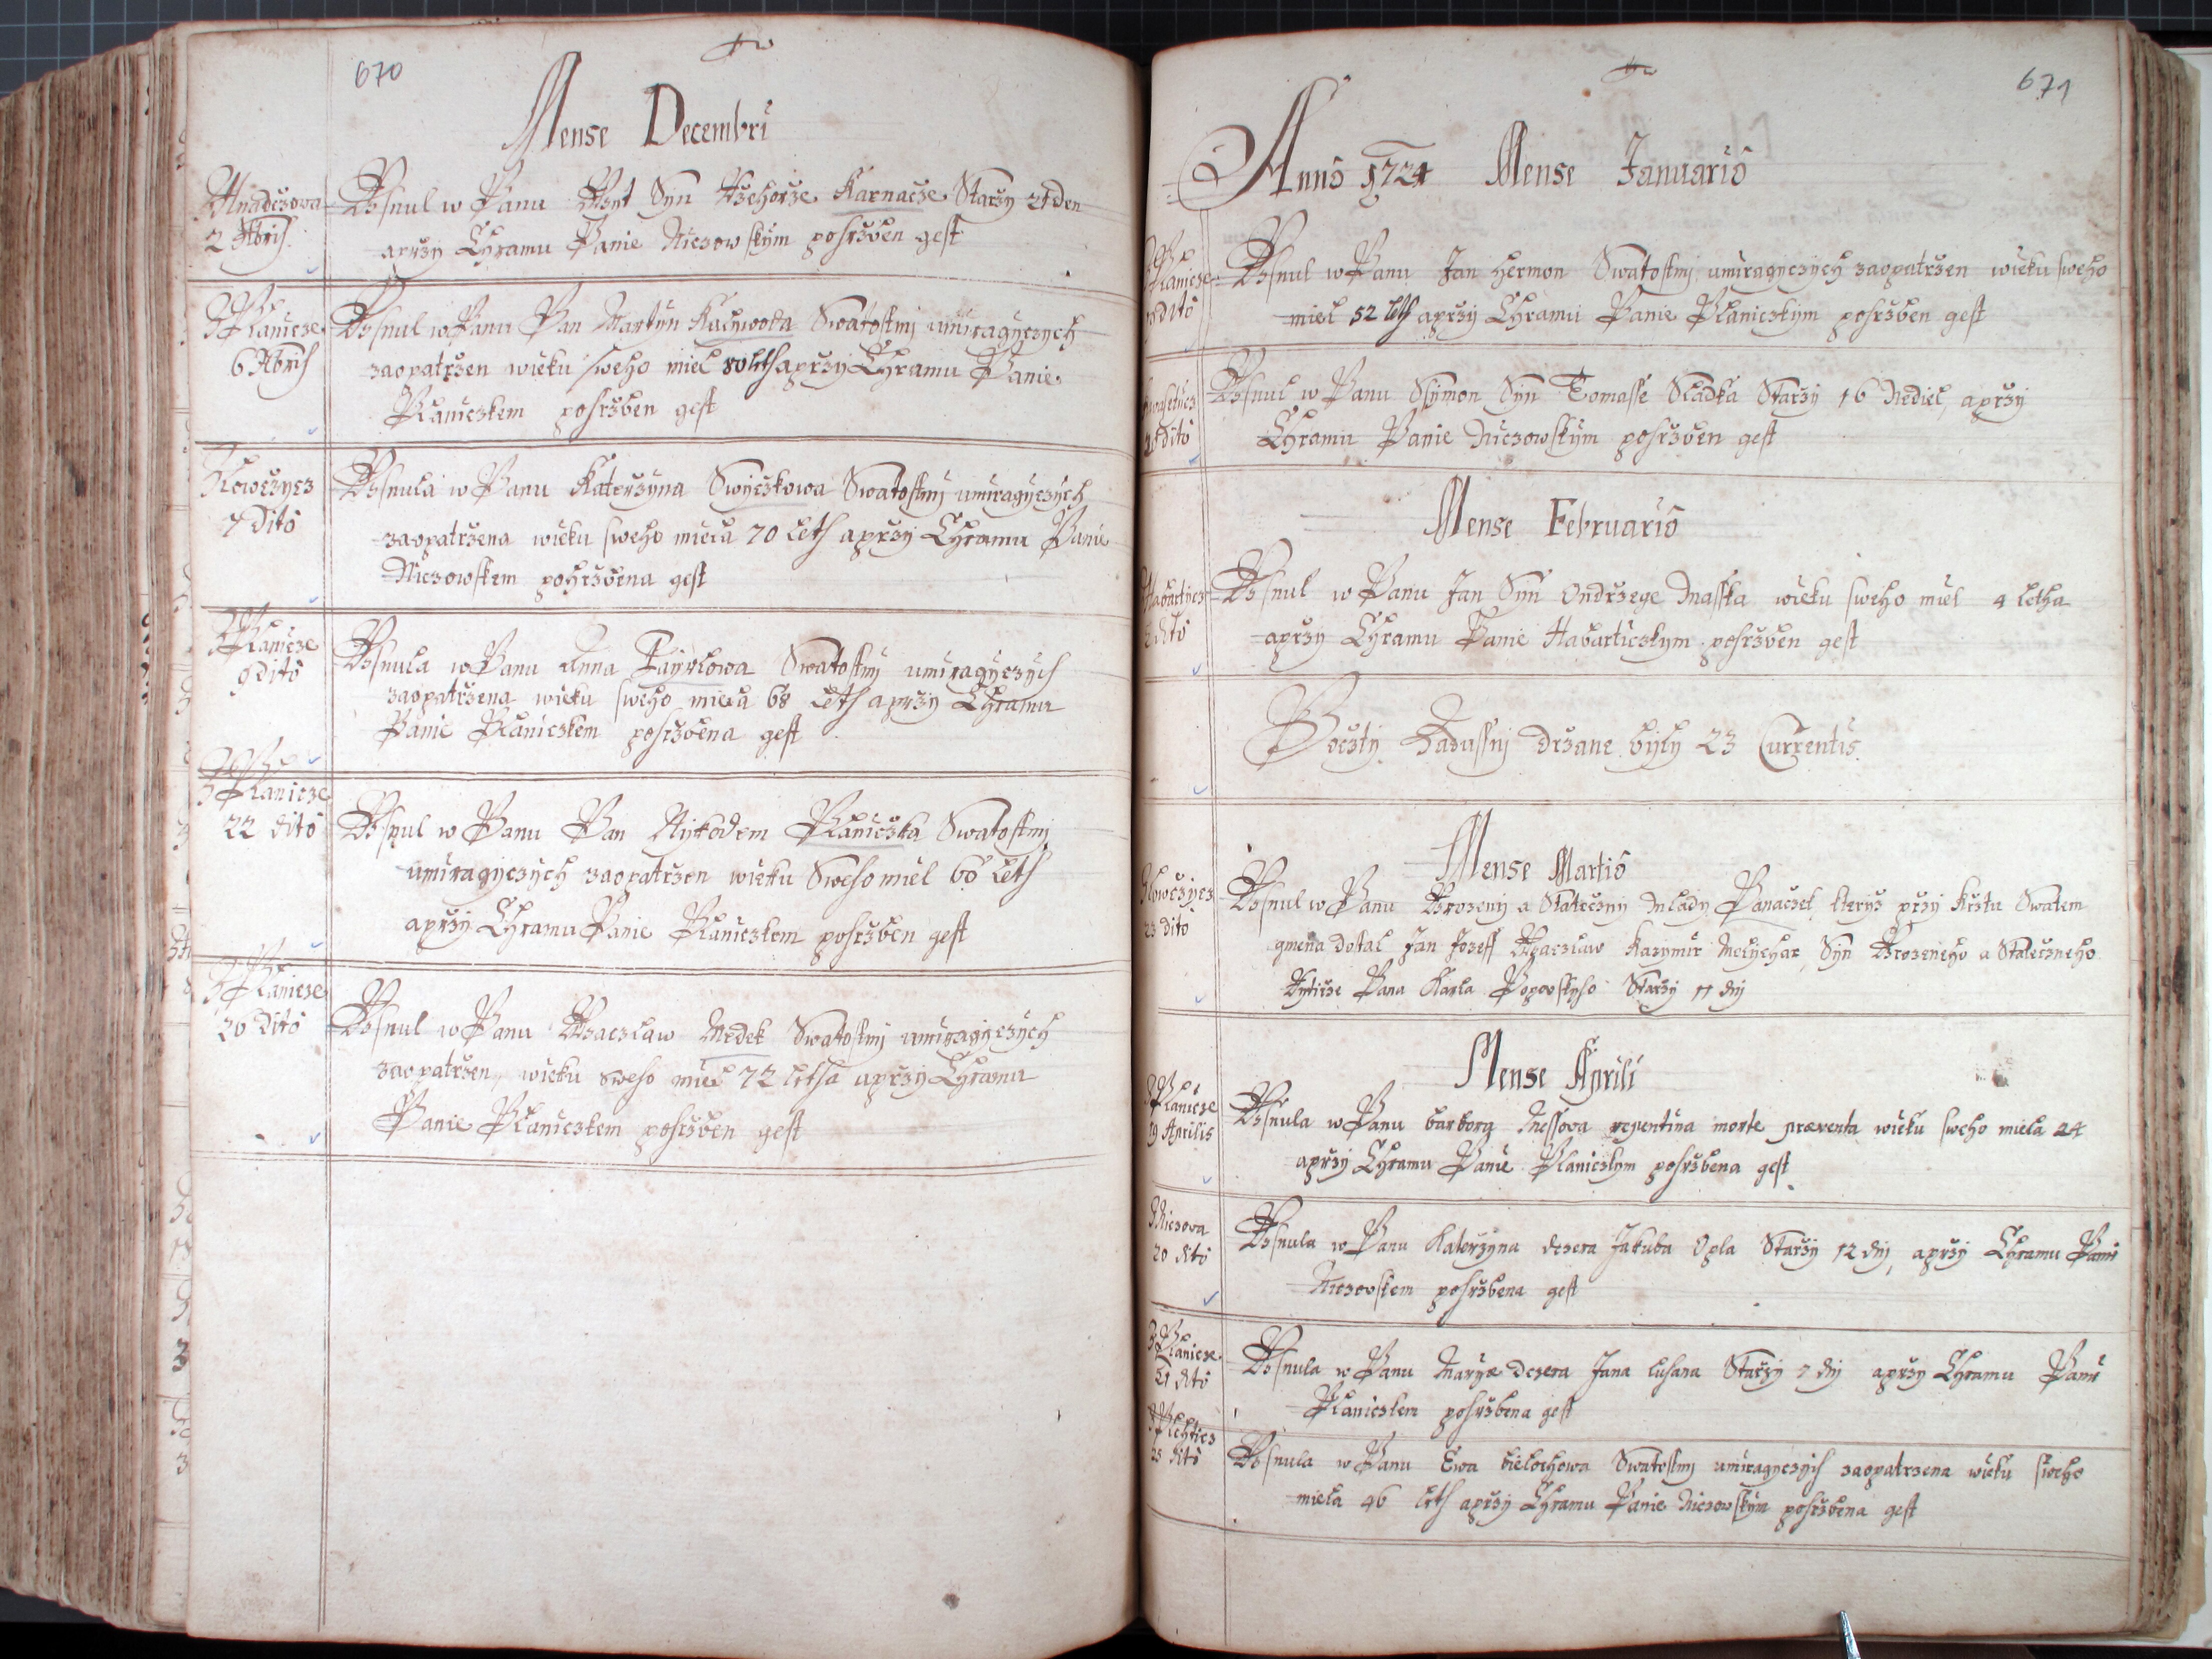 670
Mense Decembri
Mnadczowa
2 Xbris
Vsnul w Panu Wyt Syn Rzehorze Karnacze Starzy 21 den
aprzy Chramu Panie Niczowskym pohrzben gest
Z Planicze
6 Xbris
Vsnul w Panu Pan Martyn Swatostmi umiragyczych
zaopatrzen wieku sweho miel 80 leth aprzy Chramu Panie
Planiczkem pohrzben gest
Z Kowczycz
7 dito
Vsnula w Panu Katerzyna Swyczkowa Swatostmi umiragyczych
zaopatrzena wieku sweho miela 70 leth aprzy Chramu Panie
Niczowskem pohrzbena gest
Z Planicze
9 dito
Vsnula w Panu Anna Payrlowa Swatostmi umiragyczych
zaopatrzena wieku sweho miela 68 leth aprzy Chramu
Panie Planiczkem pohrzbena gest
Z Planicze
22 dito
Vsnul w Panu Pan Nykodem Planiczka Swatostmi
umiragyczych zaopatrzen wieku Sweho miel 60 leth
aprzy Chramu Panie Planiczkem pohrzben gest
Z Planicze
26 dito
Vsnul w Panu Waczlaw Medek Swatostmi umiragyczych
zaopatrzen, wieku sweho miel 72 letha aprzy Chramu
Panie Planiczkem pohrzben gest
671
Anno 1724 Mense Januario
Planicze
dito
Vsnul w Panu Jan Hermon Swatostmi umiragyczych zaopatrzen wieku sweho
miel 52 leth aprzy Chramu Panie Planiczkym pohrzben gest
dito
Vsnul w Panu Ssymon Syn Tomasse Sladka Starzy 16 Nediel, aprzy
Chramu Panie Niczowskym pohrzben gest
Mense Februario
Habartycz
dito
Vsnul w Panu Jan Syn Ondrzege Masska wieku sweho miel 4 letha
aprzy Chramu Panie Habarticzkym pohrzben gest
Poczty Kadussni drzane byly 23 Currentis.
Mense Martio
Kowczycz
23 dito
Vsnul w Panu Urozeny a Stateczny Mlady Panaczek kterys przy Krztu Swatem
gmena dostal Jan Jozeff Waczslaw Kazymir Melychar, Syn Urozeneho a Stateczneho
Rytirze Pana Karla Popowskyho Starzy 11 dny
Mense Aprili
Planicze
19 Aprilis
Vsnula w Panu barbora Messova repentina morte præventa wieku sweho miela 24
aprzy Chramu Panie Planiczkym pohrzbena gest
Niczova
20 dito
Vsnula w Panu Katerzyna dczera Jakuba Opla Starzy 12 dny, aprzy Chramu Panie
Niczovskem pohrzbena gest
Z Planicze
21 dito
Vsnula w Panu Marya dczera Jana luhana Starzy 7 dny aprzy Chramu Panie
Planiczkem pohrzbena gest
25 dito
Vsnula w Panu Ewa bielochowa Swatostmi umiragyczych zaopatrzena wieku sweho
miela 46 leth aprzy Chramu Panie Niczowskym pohrzbena gest